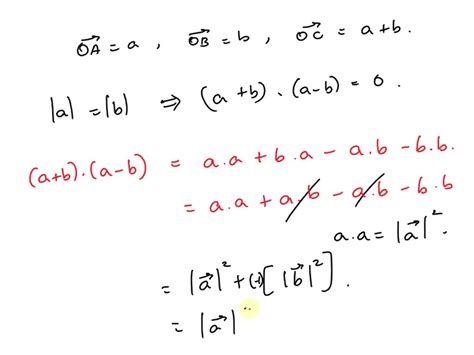 \vec{OA} = a , \vec{OB} = b , \vec{OC} = a+b .
|a| = |b| ⇒ (a+b) . (a-b) = 0 .
(a+b).(a-b) = a.a + b.a - a.b - b.b.
= a.a + a.b - a.b - b.b
a.a = |\vec{a}|^2.
= |\vec{a}|^2 + (-1)[ |\vec{b}|^2 ] .
= |\vec{a}|